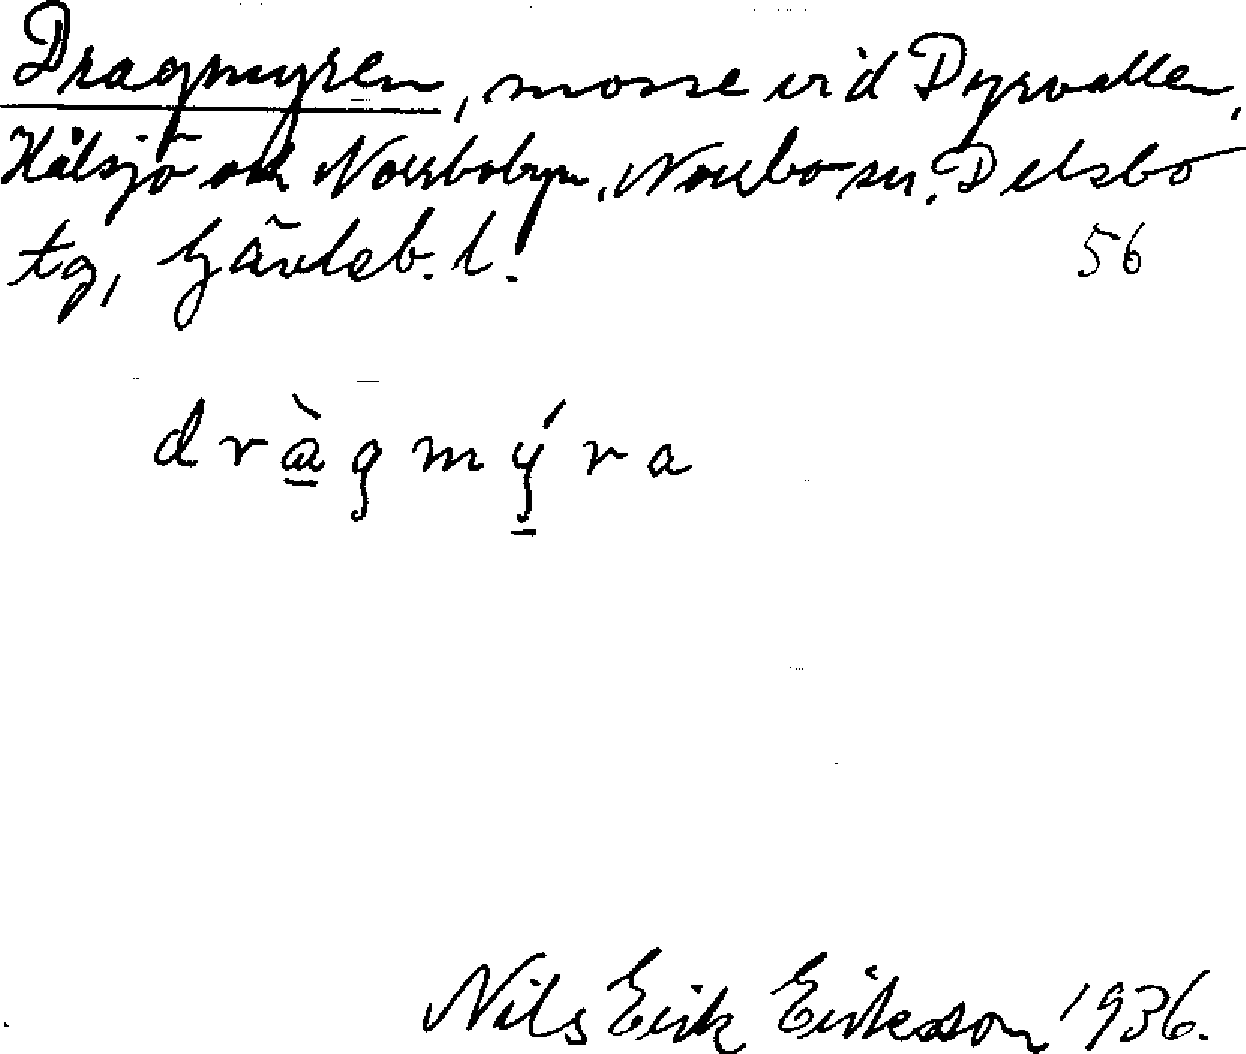 Dragmyren, mosse vid Dyrvallen,
Hålsjö och Norrbobyn, Norrbo sn. Delsbo
tg, Gävleb. l.
56
dràgmýra
Nils Erik Eriksson 1936.